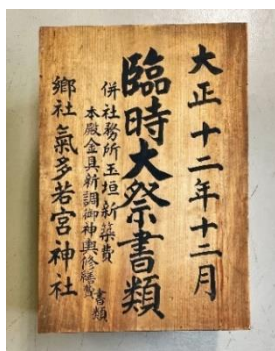 大正十二年十二月
臨時大祭書類
併社務所玉垣新築費
本殿金具新調御神輿修繕費書類
郷社氣多若宮神社